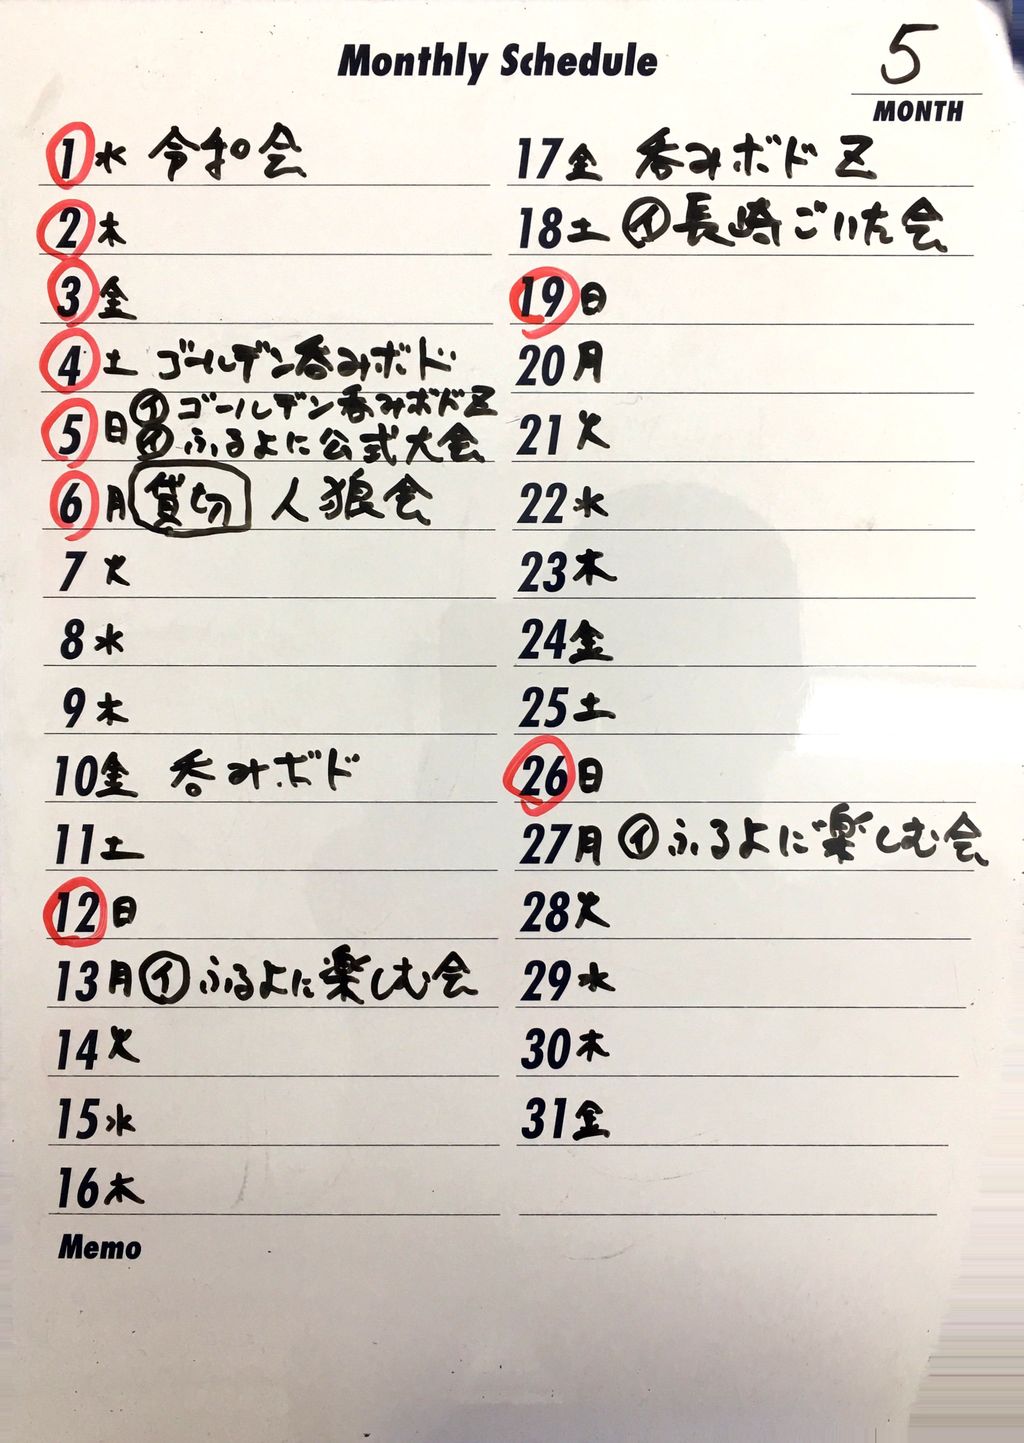 Monthly Schedule
5
MONTH
1 水 令和会
2 木
3 金
4 土 ゴールデン呑みボド
5 日 ㋑ ゴールデン呑みボドZ
㋑ ふるよに公式大会
6 月 貸切 人狼会
7 火
8 水
9 木
10 金 呑みボド
11 土
12 日
13 月 ㋑ ふるよに楽しむ会
14 火
15 水
16 木
17 金 呑みボドZ
18 土 ㋑ 長崎ごいた会
19 日
20 月
21 火
22 水
23 木
24 金
25 土
26 日
27 月 ㋑ ふるよに楽しむ会
28 火
29 水
30 木
31 金
Memo